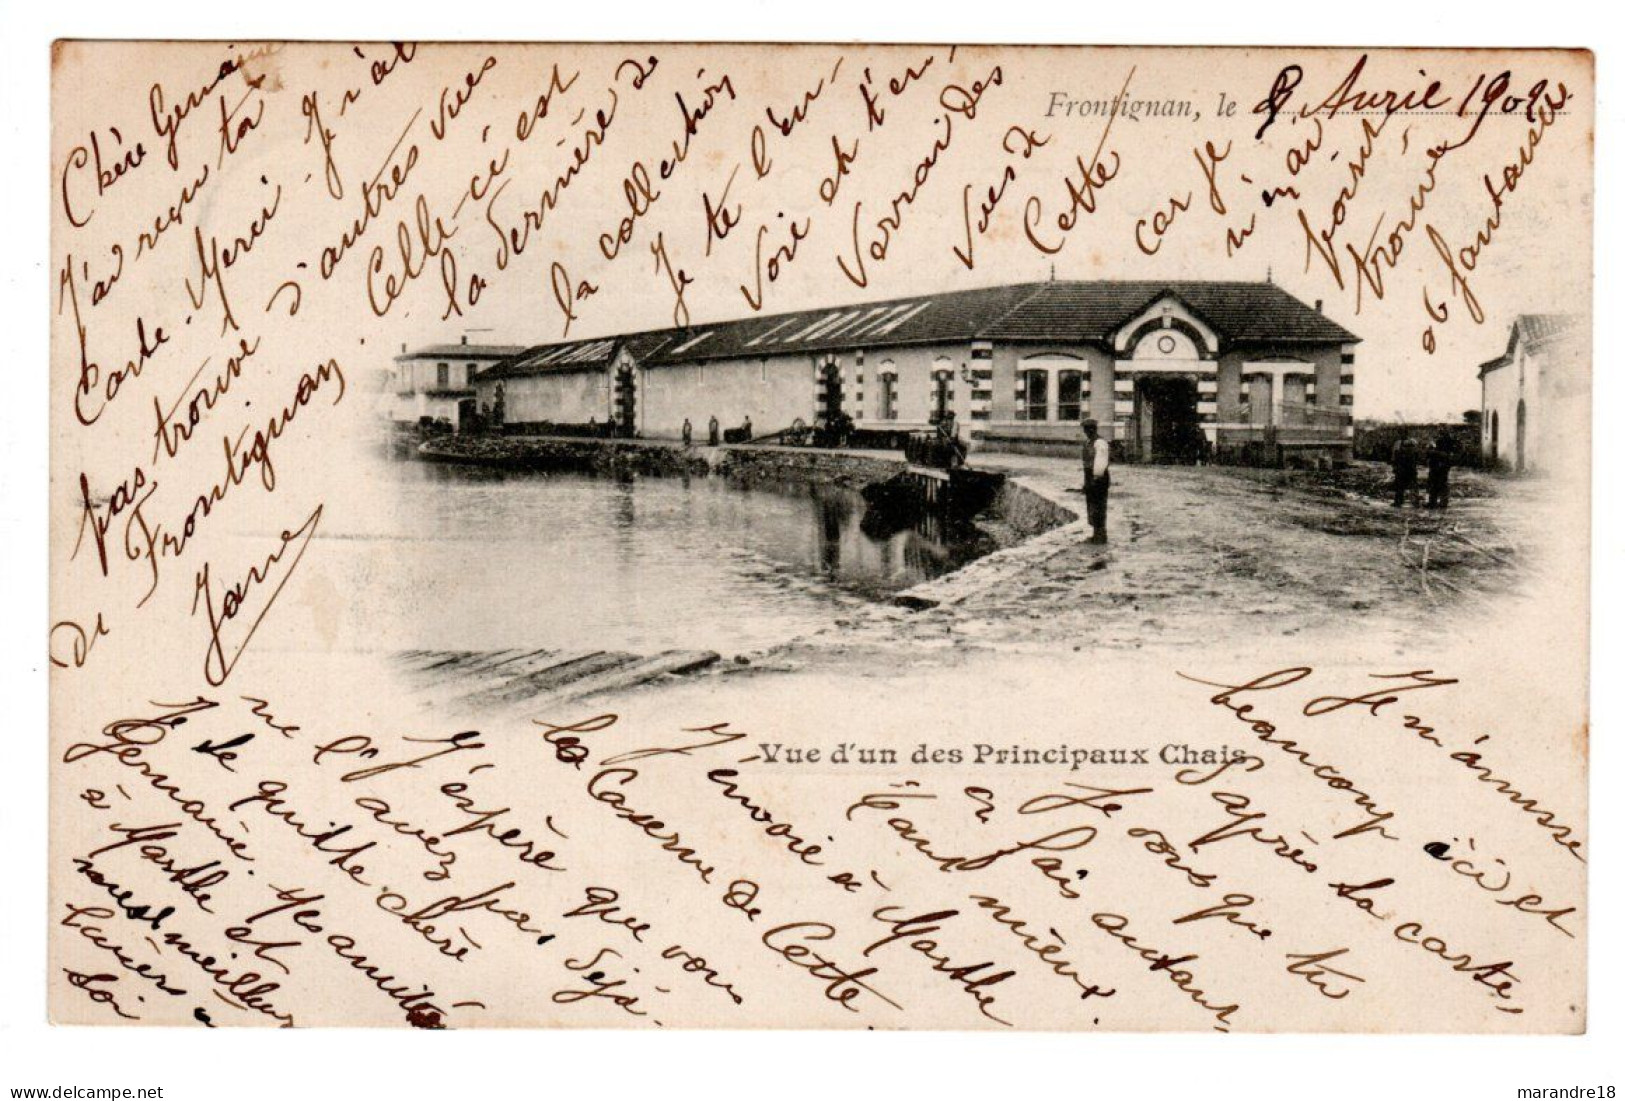 Frontignan, le 8 Avril 1902
Chère Germaine
J'ai reçu ta
Carte. Merci. Je n'ai
pas trouvé d'autres vues
de Frontignan. Celle-ci est
la dernière de
la collection
Je te l'en-
voie et t'en-
verrai des
vues de
Cette
car je
n'en ai
point
trouvé
de fantaisie
Jane
J. ROTA
Vue d'un des Principaux Chais
Je m'amuse
beaucoup ici et
d'après ta carte,
Je vois que tu
en fais autant,
tant mieux.
J'envoie à Marthe
la Caserne de Cette
J'espère que vous
ne l'avez pas déjà.
Je te quitte chère
Germaine. Mes amitiés
à Marthe et
meilleurs
baisers à
toi
marandre18